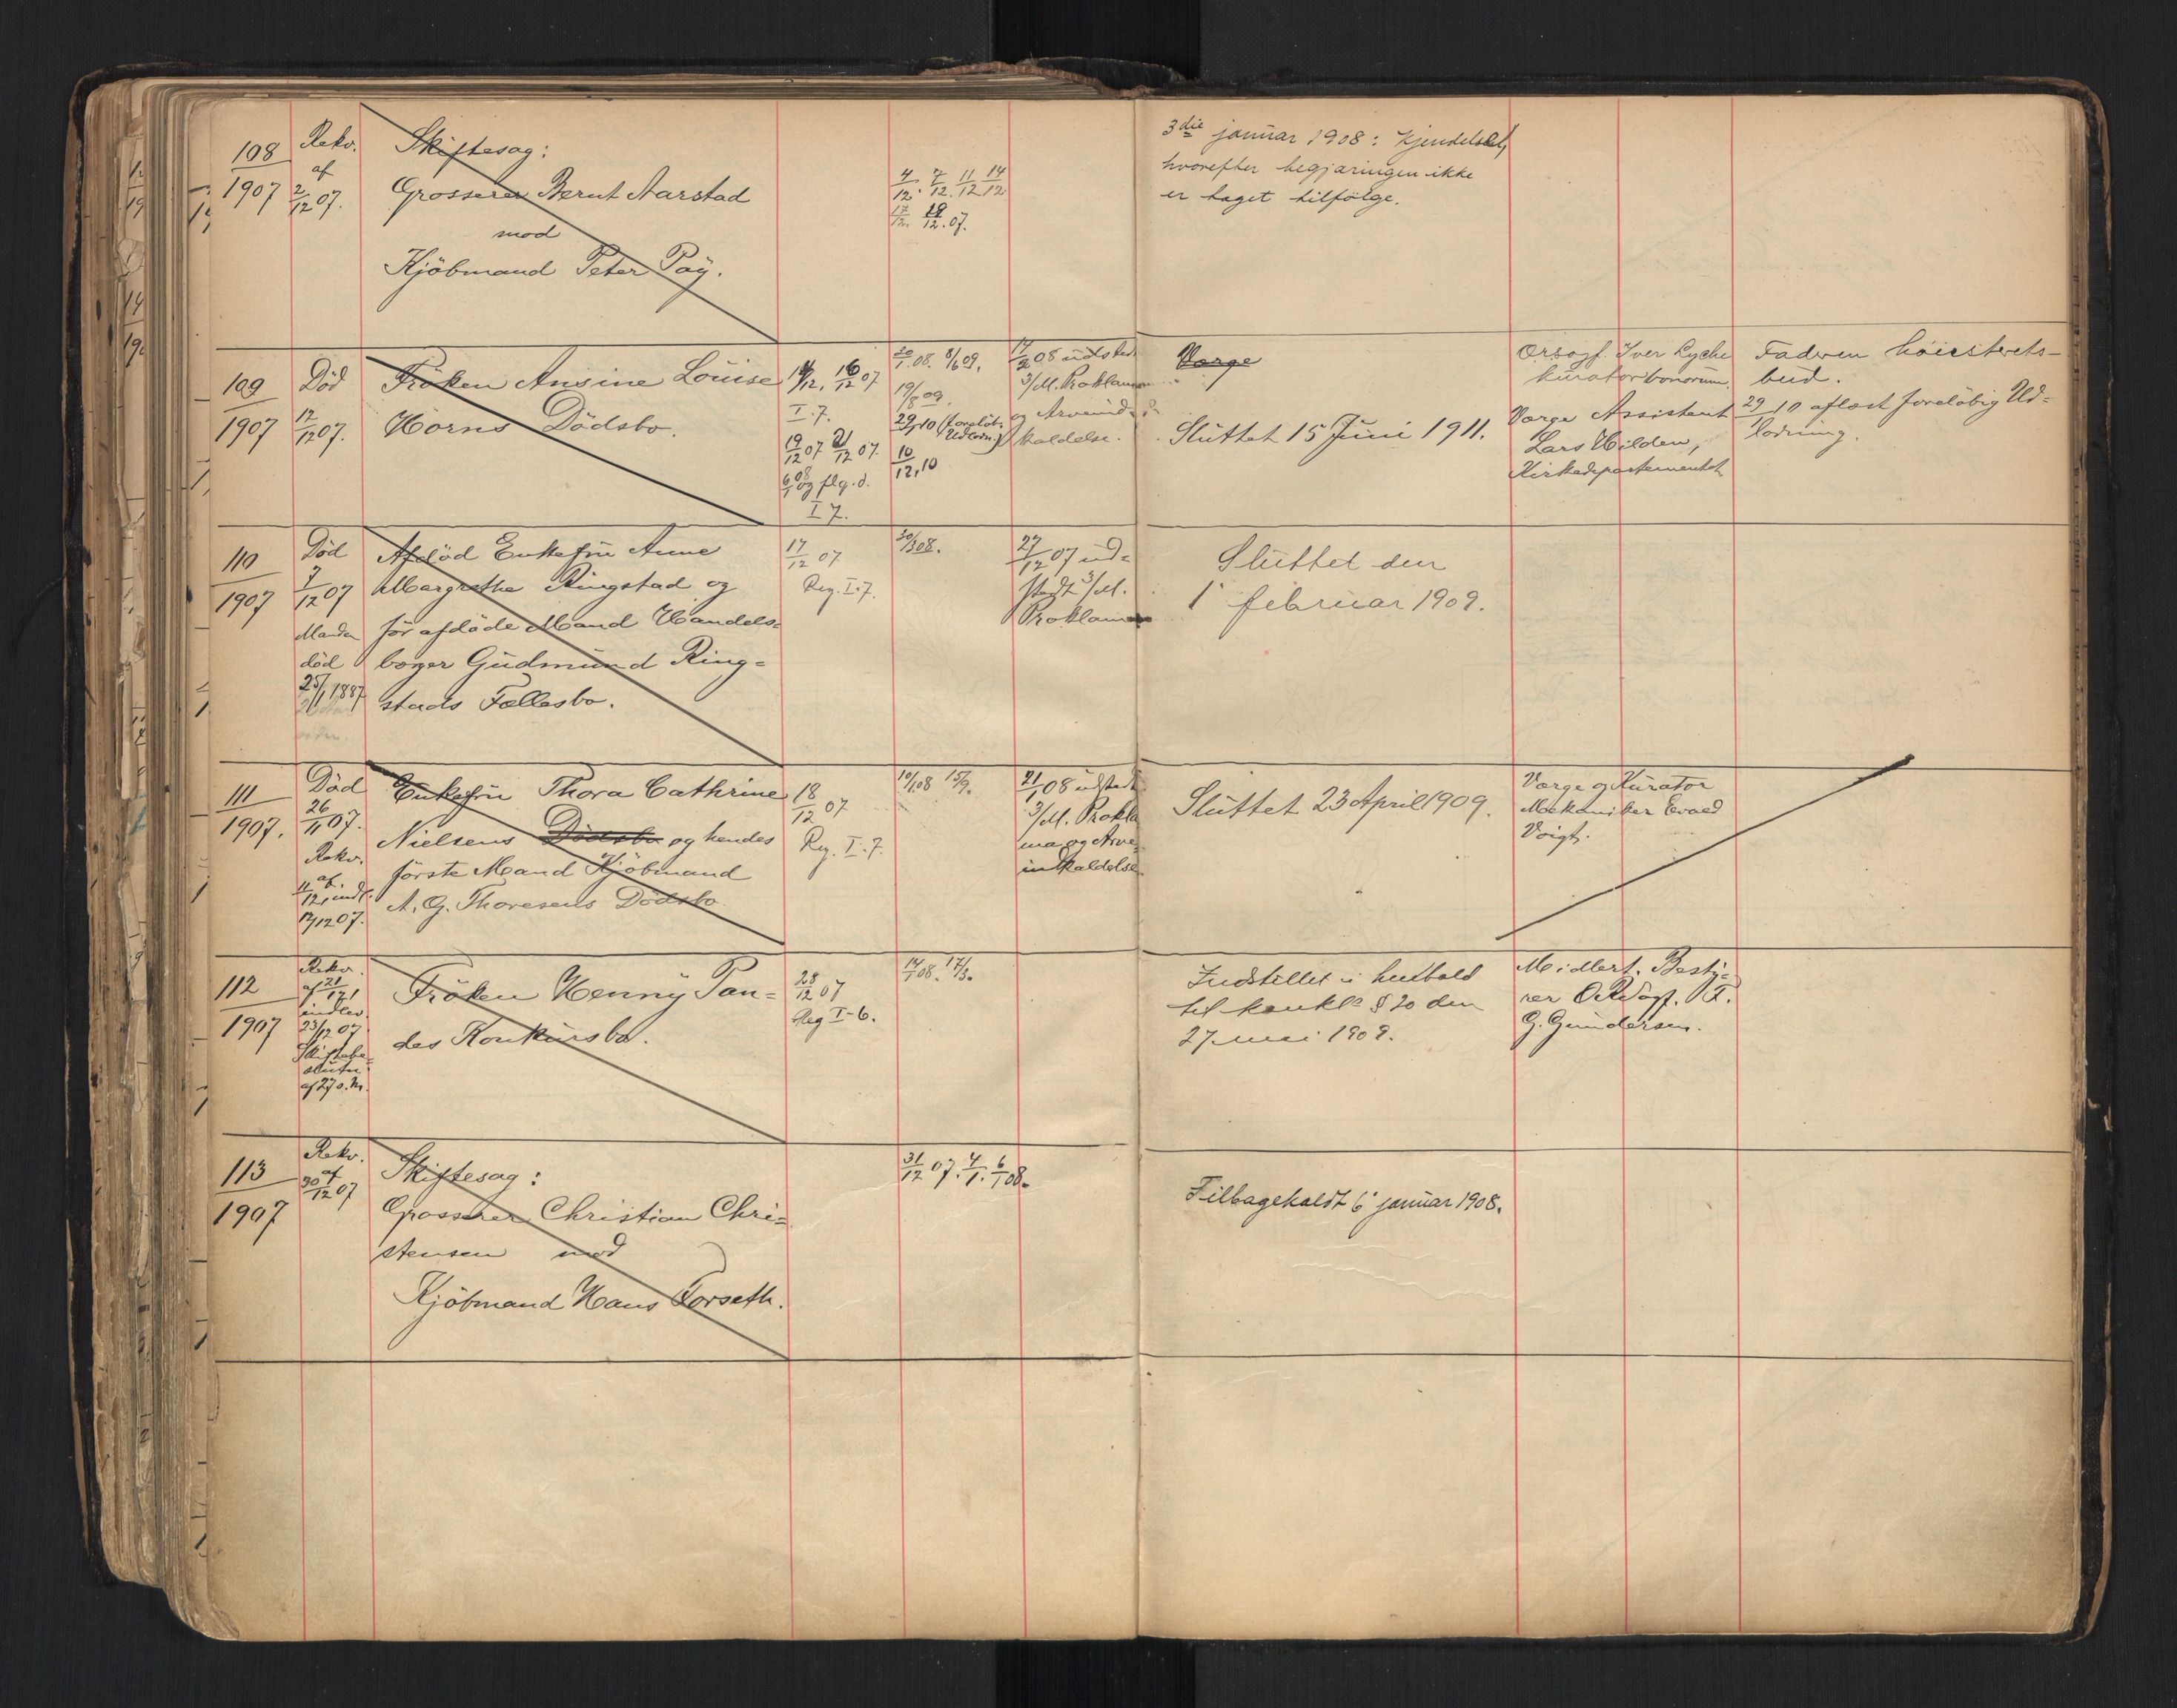 108
1907
Rekv.
af
2/12 07.
Skiftesag:
Grosserer Bernt Aarstad
mod
Kjöbmand Peter Pay.
4/12. 7/12. 11/12 14/12
17/12. 07.
3die januar 1908: Kjendelse,
hvorefter begjæringen ikke
er taget tilfölge.
109
1907
Död
12/12 07.
Fröken Ansine Louise
Horns Dödsbo.
14/12, 16/12 07
I.7.
19/12 07 21/12 07.
og flg. d.
I 7.
19/8 09.
29/10 (foreløb.
Udlodn.)
10/12, 10
08 udstedt
3/M. Proklama
og Arveind-
kaldelse.
Værge
Sluttet 15 Juni 1911.
Orsagf. Iver Lyche
kurator bonorum.
Værge Assistent
Lars Hilden,
Kirkedepartementet
Faderen höiesterets-
bud.
29/10 afløst foreløbig Ud-
lodning.
110
1907
Död
7/12 07
Manden
död
25/1 1887
Afdöd Enkefru Anne
Margrethe Ringstad og
för afdöde Mand Handels-
borger Gudmund Ring-
stads Fællesbo.
17/12 07
Reg. I.7.
27/12 07 ud-
stedt 3/M.
Proklama
Sluttet den
1' februar 1909.
111
1907.
Död
26/11 07.
Rekv.
af
11/12, indl.
12/12 07.
Enkefru Thora Cathrine
Nielsens Dödsbo og hendes
förste Mand Kjöbmand
A. G. Thoresens Dödsbo.
18/12 07
Reg. I.7.
21/1 08 udstedt
3/M. Prokla
ma og Arve-
indkaldelse
Sluttet 23 April 1909.
Værge og Kurator
Mekaniker Evald
Voigt.
112
1907
Rekv.
af 21/12,
indlev.
23/12 07
Skiftebe-
slutn.
af 27 s. M.
Fröken Henny Pan-
des Konkursbo.
28/12 07
Reg I-6.
14/1 08. 17/3.
Indstillet i henhold
til konkl. § 20 den
27 mai 1908.
Midlert. Besty-
rer O.R.Sagf. F.
G. Gundersen.
113
1907
Rekv.
af
30/12 07
Skiftesag:
Grosserer Christian Chri-
stensen mod
Kjöbmand Hans Forseth.
31/12 07. 4/1. 6/1 08.
Tilbagekaldt 6' januar 1908.